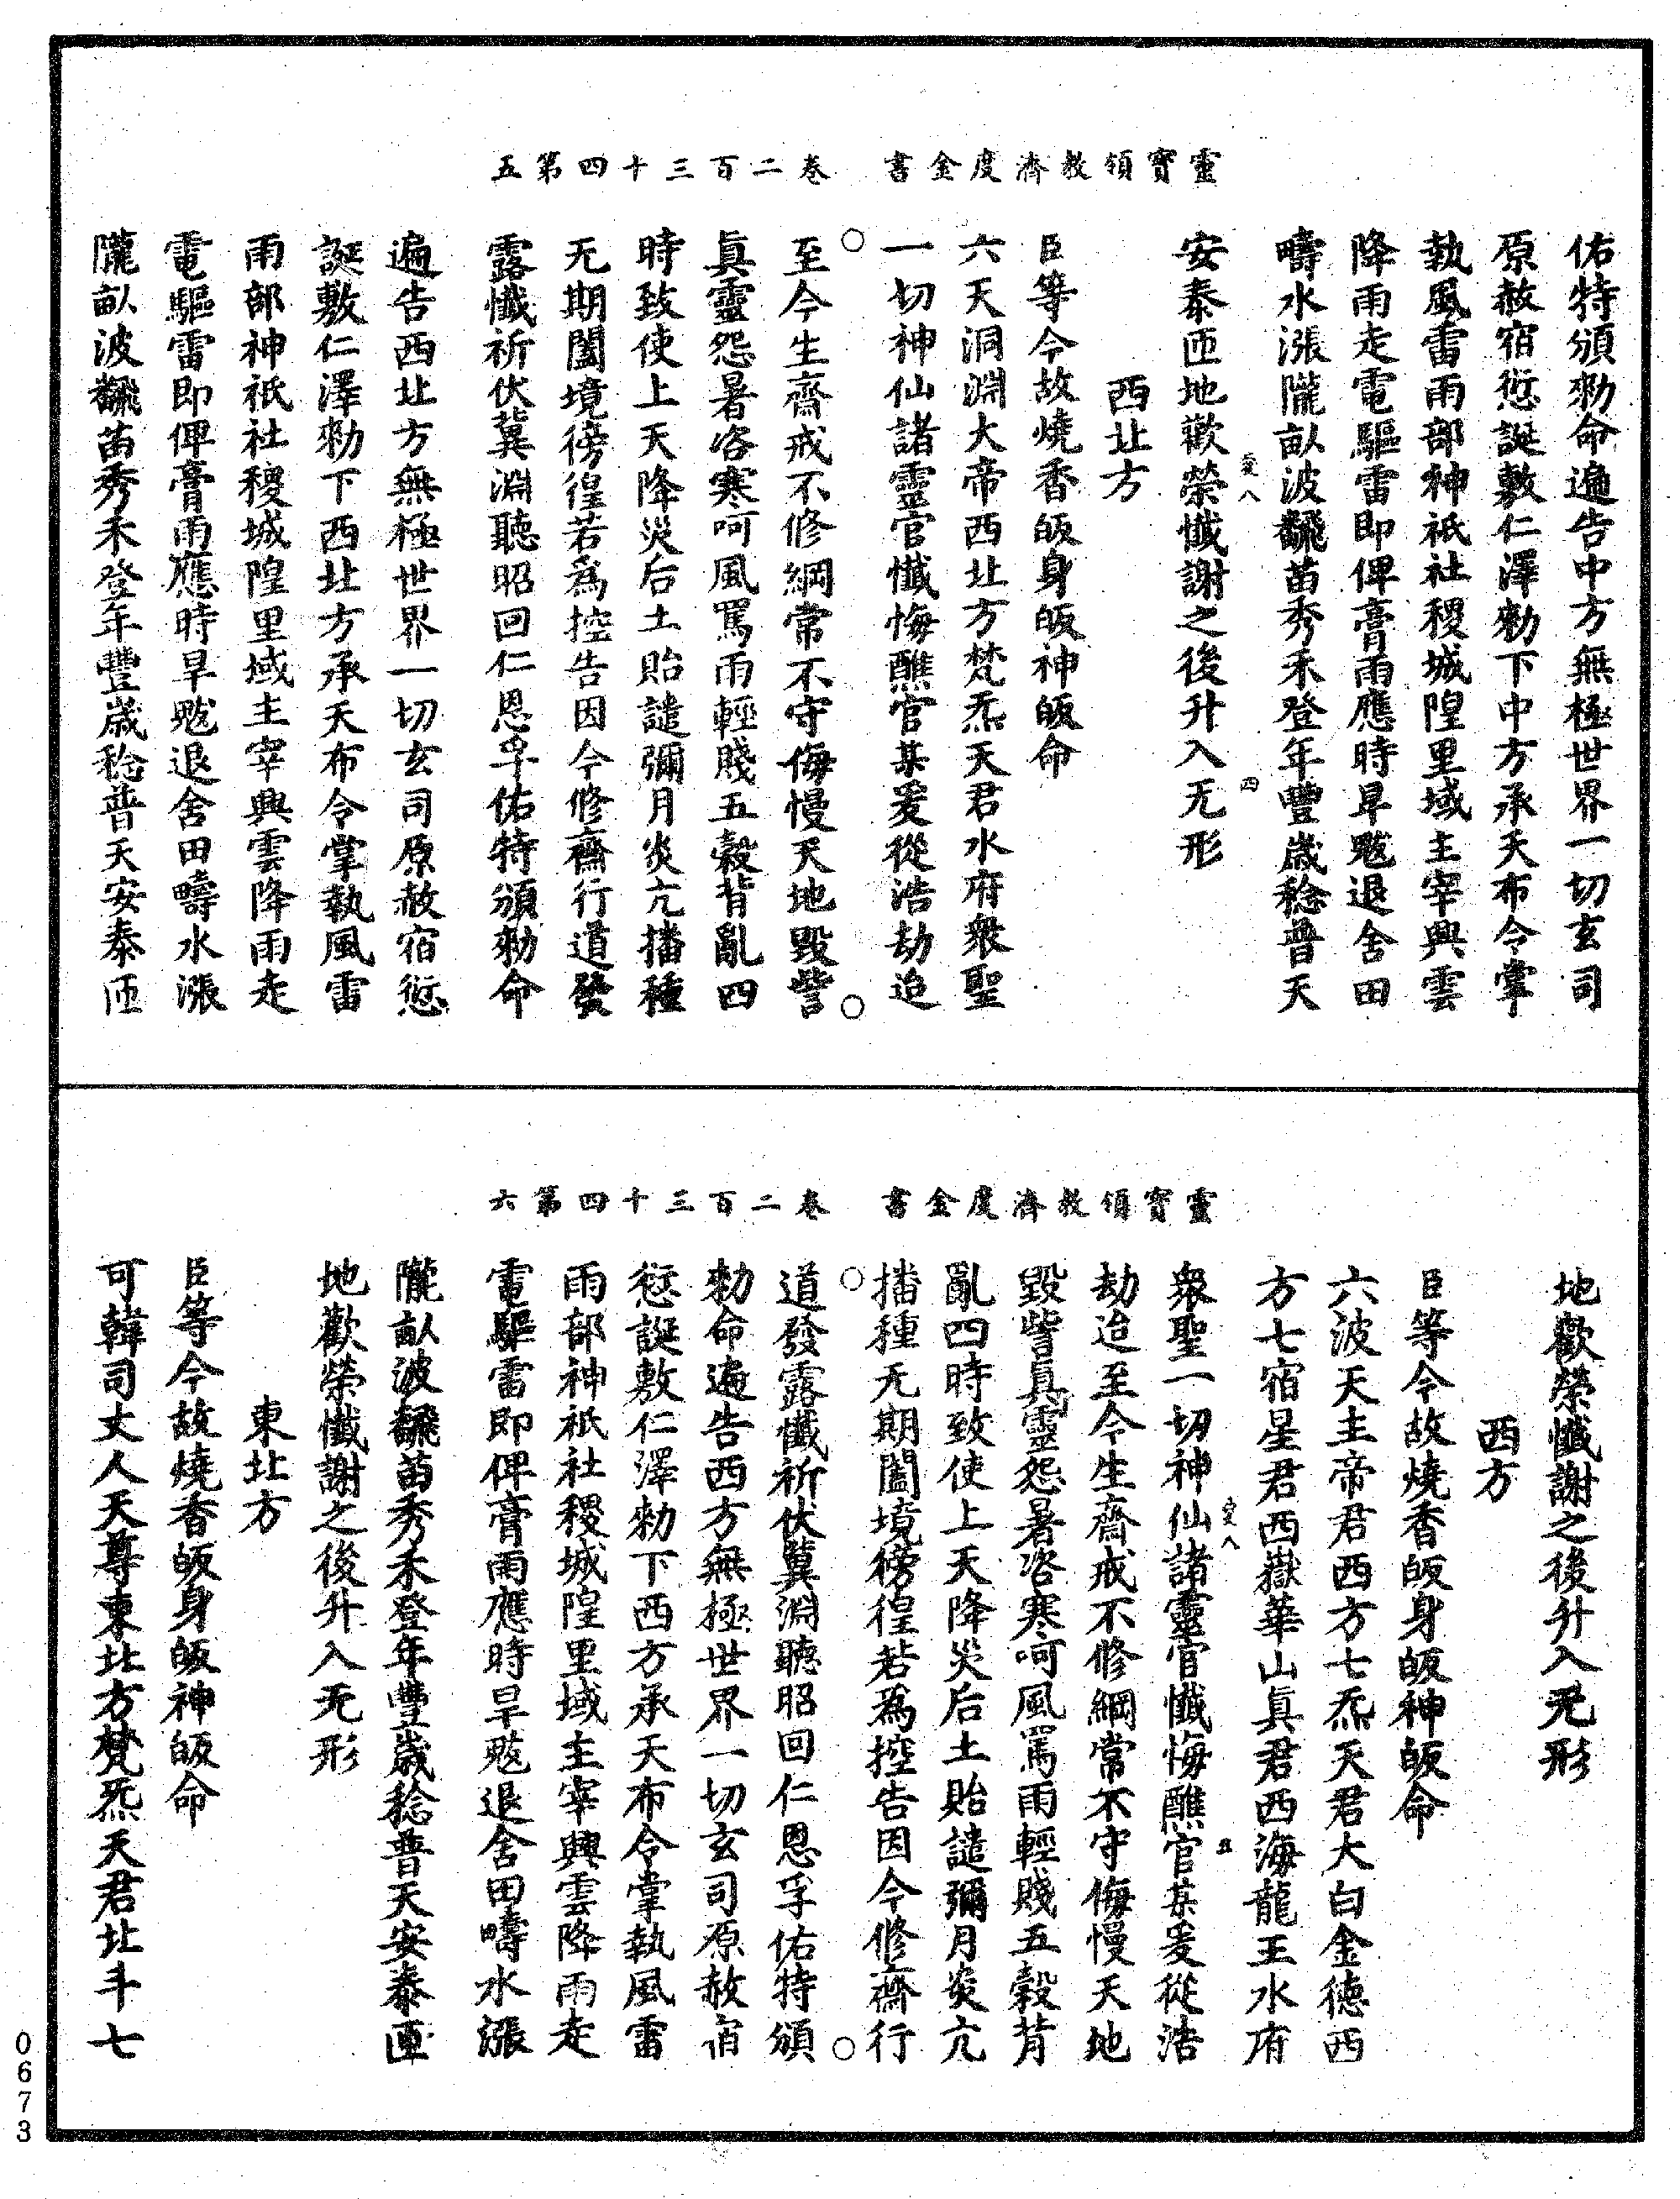 靈寶領教濟度金書　卷二百三十四第五
佑特頒勑命遍告中方無極世界一切玄司
原赦宿愆誕敷仁澤勑下中方承天布令掌
執風雷雨部神祇社稷城隍里域主宰興雲
降雨走電驅雷即俾膏雨應時旱魃退舍田
疇水漲隴畝波飜苗秀禾登年豐歲稔普天
安泰匝地歡榮懺謝之後升入无形
西北方
臣等今故燒香皈身皈神皈命
六天洞淵大帝西北方梵炁天君水府衆聖
一切神仙諸靈官懺悔醮官某爰從浩劫迨
至今生齋戒不修綱常不守侮慢天地毀訾
眞靈怨暑咨寒呵風罵雨輕賤五穀背亂四
時致使上天降災后土貽譴彌月炎亢播種
无期闔境徬徨若爲控告因今修齋行道發
露懺祈伏冀淵聽昭回仁恩孚佑特頒勑命
遍告西北方無極世界一切玄司原赦宿愆
誕敷仁澤勑下西北方承天布令掌執風雷
雨部神祇社稷城隍里域主宰興雲降雨走
電驅雷即俾膏雨應時旱魃退舍田疇水漲
隴畝波飜苗秀禾登年豐歲稔普天安泰匝
靈寶領教濟度金書　卷二百三十四第六
地歡榮懺謝之後升入无形
西方
臣等今故燒香皈身皈神皈命
六波天主帝君西方七炁天君大白金德西
方七宿星君西嶽華山眞君西海龍王水府
衆聖一切神仙諸靈官懺悔醮官某爰從浩
劫迨至今生齋戒不修綱常不守侮慢天地
毀訾眞靈怨暑咨寒呵風罵雨輕賤五穀背
亂四時致使上天降災后土貽譴彌月炎亢
播種无期闔境徬徨若爲控告因今修齋行
道發露懺祈伏冀淵聽昭回仁恩孚佑特頒
勑命遍告西方無極世界一切玄司原赦宿
愆誕敷仁澤勑下西方承天布令掌執風雷
雨部神祇社稷城隍里域主宰興雲降雨走
電驅雷即俾膏雨應時旱魃退舍田疇水漲
隴畝波飜苗秀禾登年豐歲稔普天安泰匝
地歡榮懺謝之後升入无形
東北方
臣等今故燒香皈身皈神皈命
可韓司丈人天尊東北方梵炁天君北斗七
0673